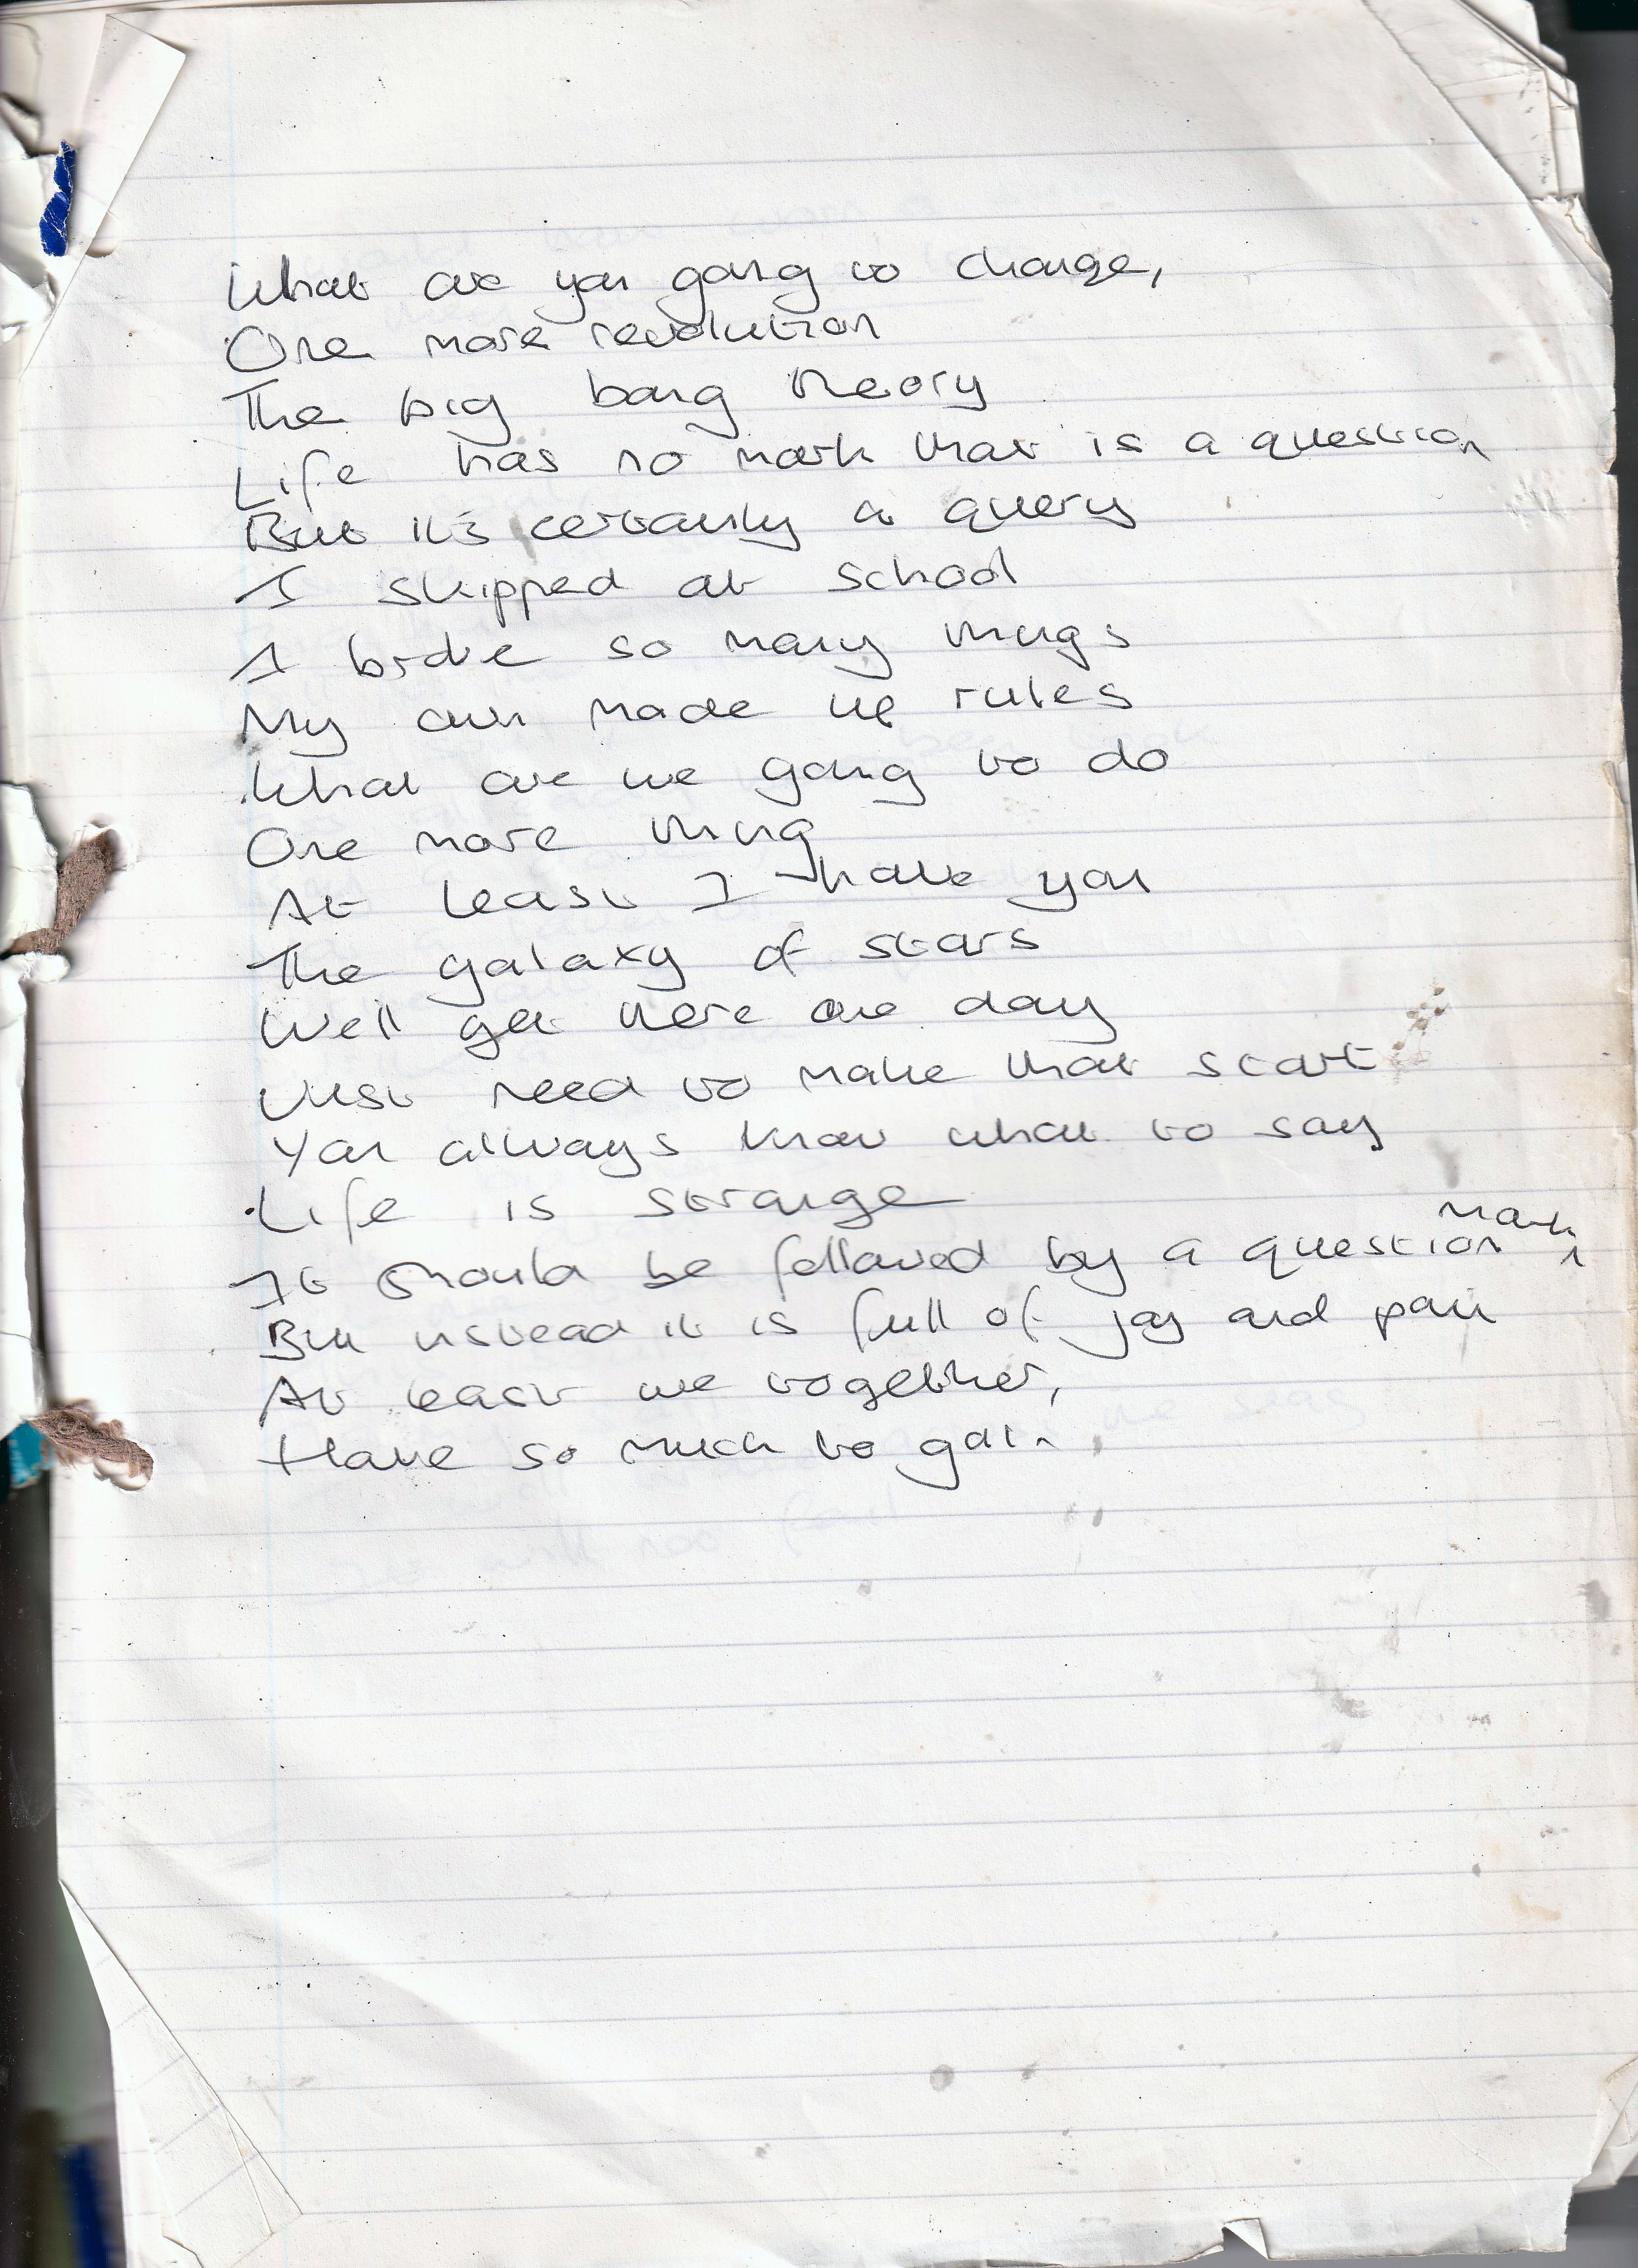 What are you going to change,
One more revolution
The big bang theory
Life has no mark that is a question
But it's certainly a query
I skipped at school
I broke so many things
My own made up rules
What are we going to do
One more thing
At least I have you
The galaxy of stars
We'll get there one day
Just need to make that start
You always know what to say
Life is strange
It should be followed by a question mark
But instead it is full of joy and pain
At least we together,
Have so much to gain